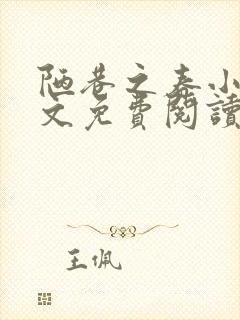 陋巷之春小
文免費閱讀
王佩